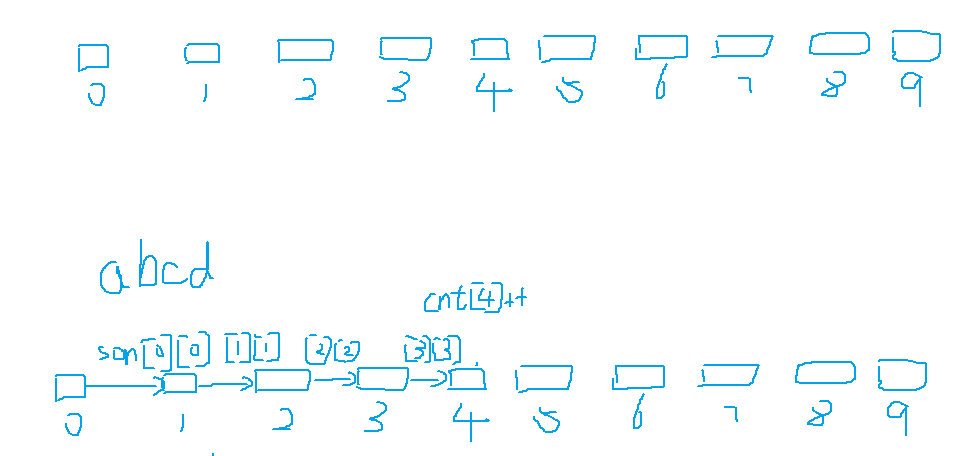 0 1 2 3 4 5 6 7 8 9
abcd
cnt[4]++
son[0][0] [1][1] [2][2] [3][3]
0 1 2 3 4 5 6 7 8 9